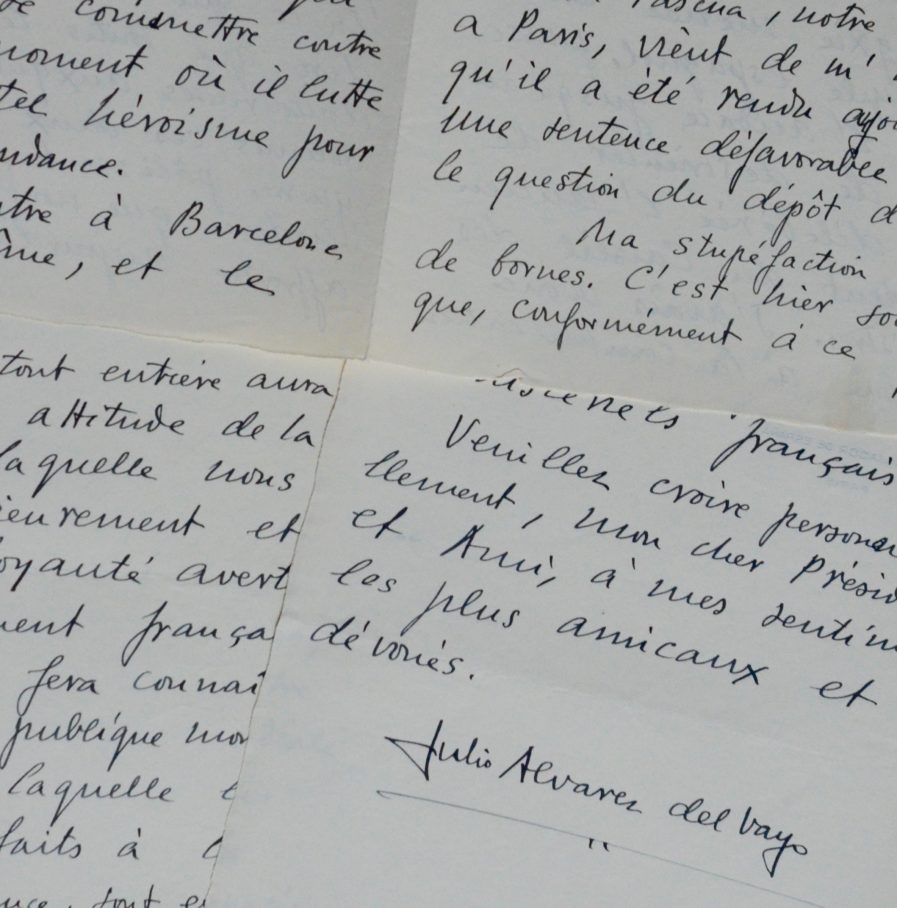 commettre contre
moment où il lutte
tel héroïsme pour
ndance.
ntre à Barcelone
ême, et le
Pascua, notre
a Paris, vient de m'
qu'il a été rendu ajou
une sentence défavorable
le question du dépôt d
Ma stupéfaction
de bornes. C'est hier so
que, conformément à ce
tout entière aura
attitude de la
laquelle nous
ieurement et
oyauté avert
ment frança
fera connaî
publique mon
laquelle
faits à
tout e
français
Veuillez croire personne
llement, mon cher Présid
et Ami, à mes sentim
les plus amicaux et
dévoués.
Julio Alvarez del Vayo